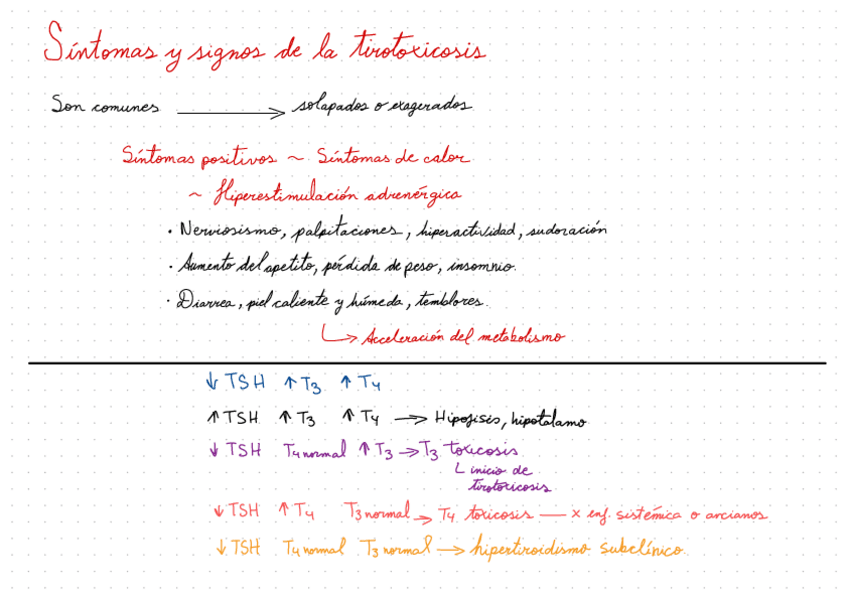 Síntomas y signos de la tirotoxicosis
Son comunes ⟶ solapados o exagerados
Síntomas positivos ~ Síntomas de calor
~ Hiperestimulación adrenérgica
· Nerviosismo, palpitaciones, hiperactividad, sudoración
· Aumento del apetito, pérdida de peso, insomnio.
· Diarrea, piel caliente y húmeda, temblores.
↳ Aceleración del metabolismo
↓ TSH ↑ T3 ↑ T4
↑ TSH ↑ T3 ↑ T4 → Hipofisis, hipotálamo
↓ TSH T4 normal ↑ T3 → T3 toxicosis
L inicio de
tirotoxicosis
↓ TSH ↑ T4 T3 normal → T4 toxicosis — x enf. sistémica o arcianos
↓ TSH T4 normal T3 normal → hipertiroidismo subclínico.